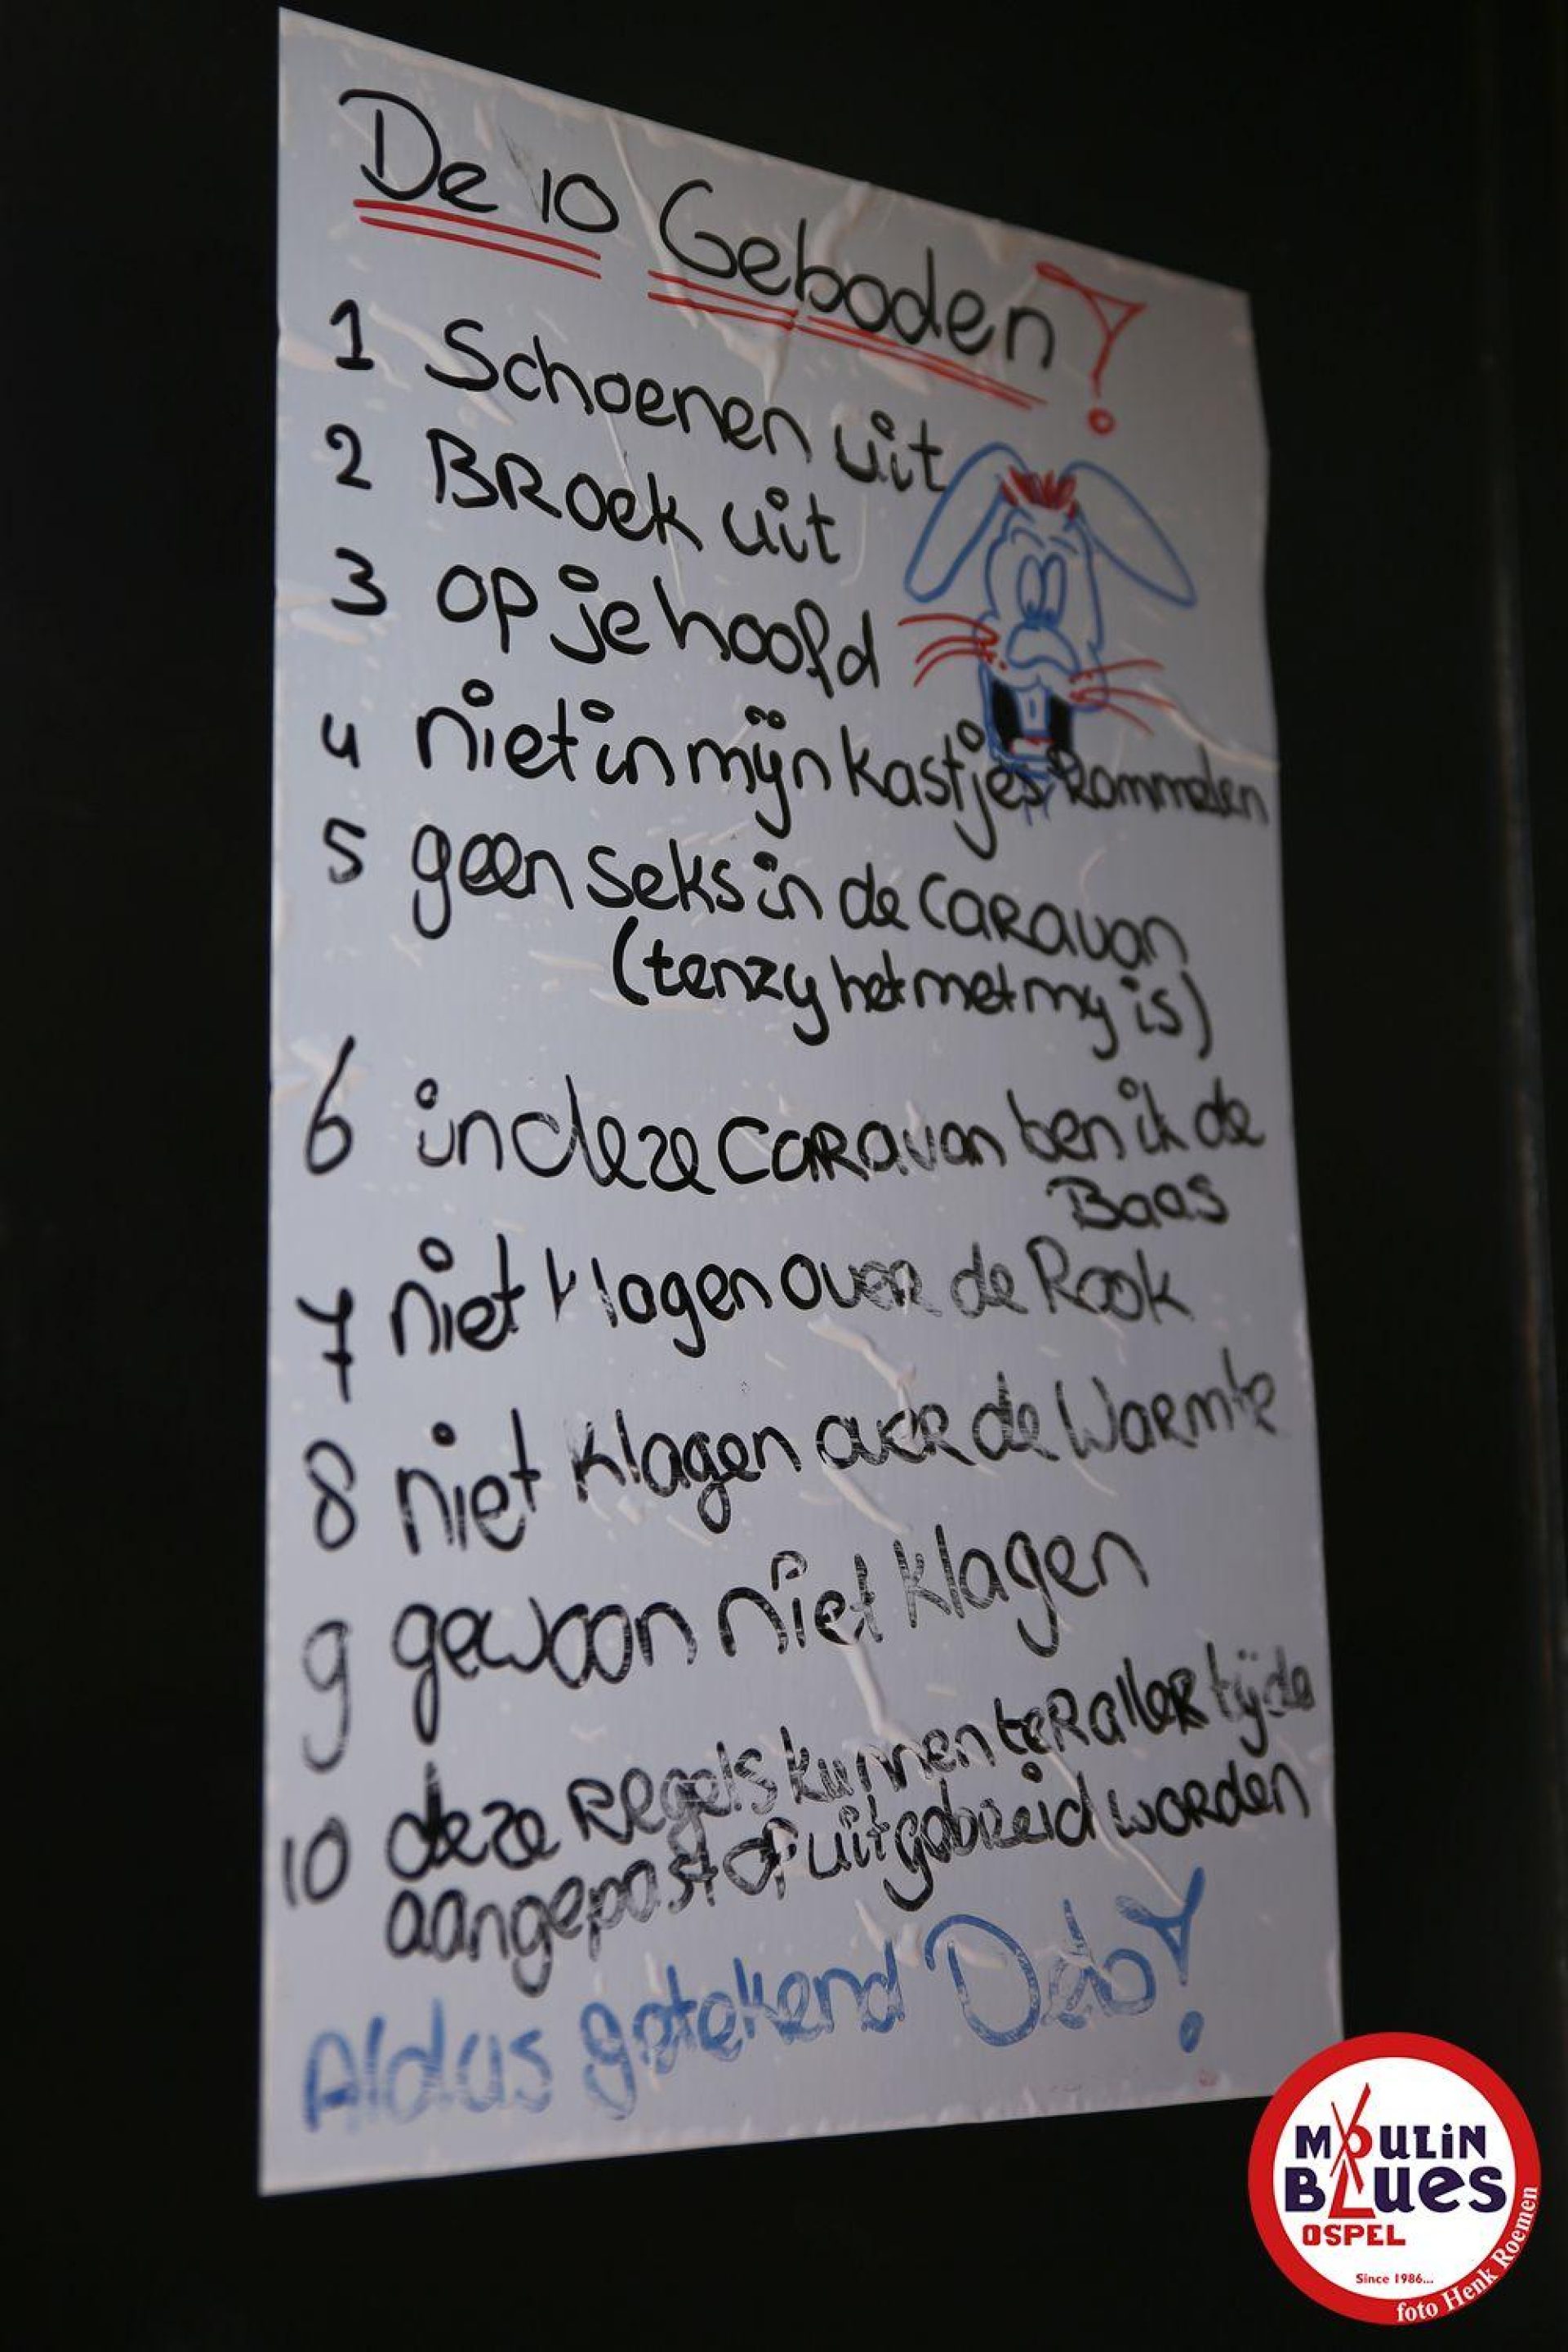 De 10 Geboden!
1 Schoenen uit
2 BRoek uit
3 op je hoofd
4 niet in mijn kastjes Rommelen
5 geen seks in de CaRavan
(tenzy het met my is)
6 in deze CaRavan ben ik de
Baas
7 niet klagen oveR de Rook
8 niet klagen oveR de WaRmte
9 gewoon niet klagen
10 deze Regels kunnen teR alleR tijde
aangepast of uitgebreid worden
Aldus getekend Deb!
MOULiN
BLues
OSPEL
Since 1986...
foto Henk Roemen